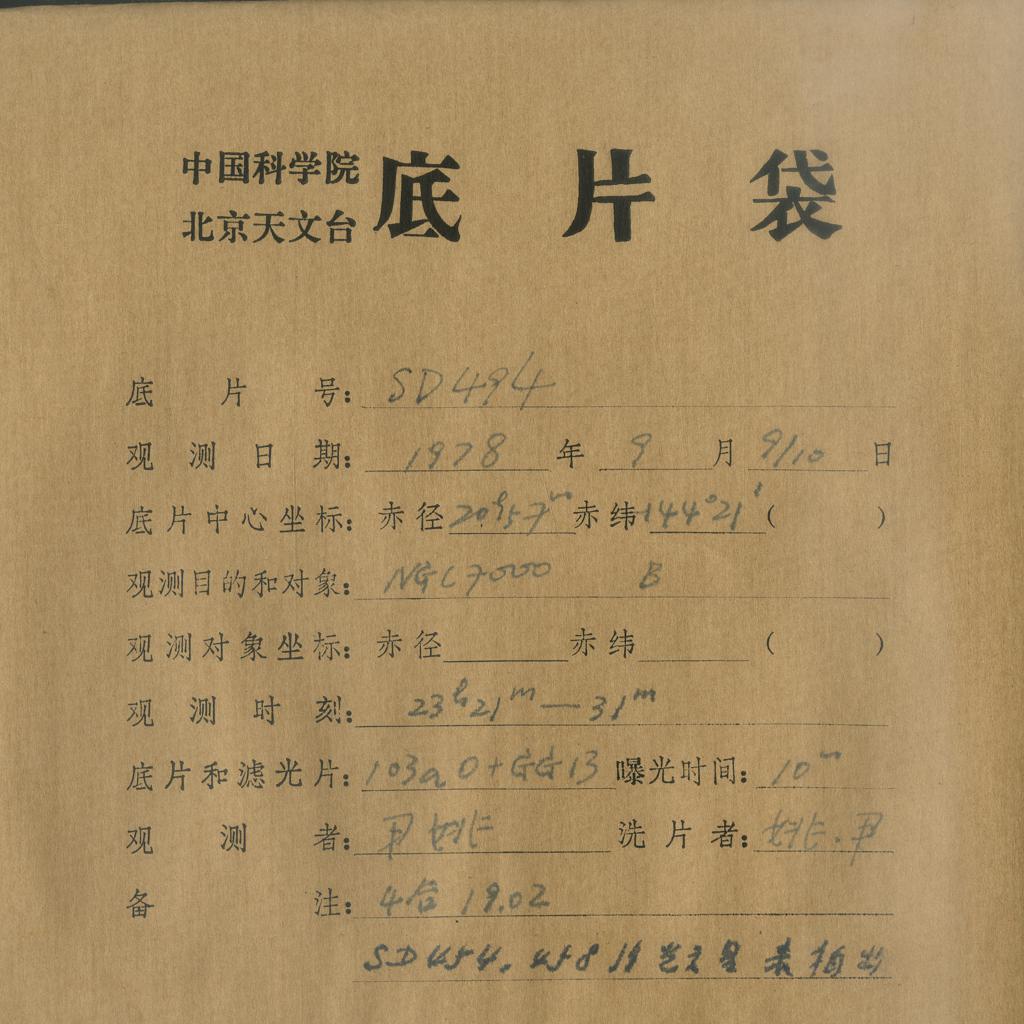 中国科学院
北京天文台
底片袋
底片号: SD494
观测日期: 1978 年 9 月 9/10 日
底片中心坐标: 赤径 20ʰ57ᵐ 赤纬 +44°21′ ( )
观测目的和对象: NGC7000 B
观测对象坐标: 赤径 赤纬 ( )
观测时刻: 23ʰ21ᵐ—31ᵐ
底片和滤光片: 103aO+GG13 曝光时间: 10ᵐ
观测者: 洗片者:
备注: 19.02
SD454. 458 星表